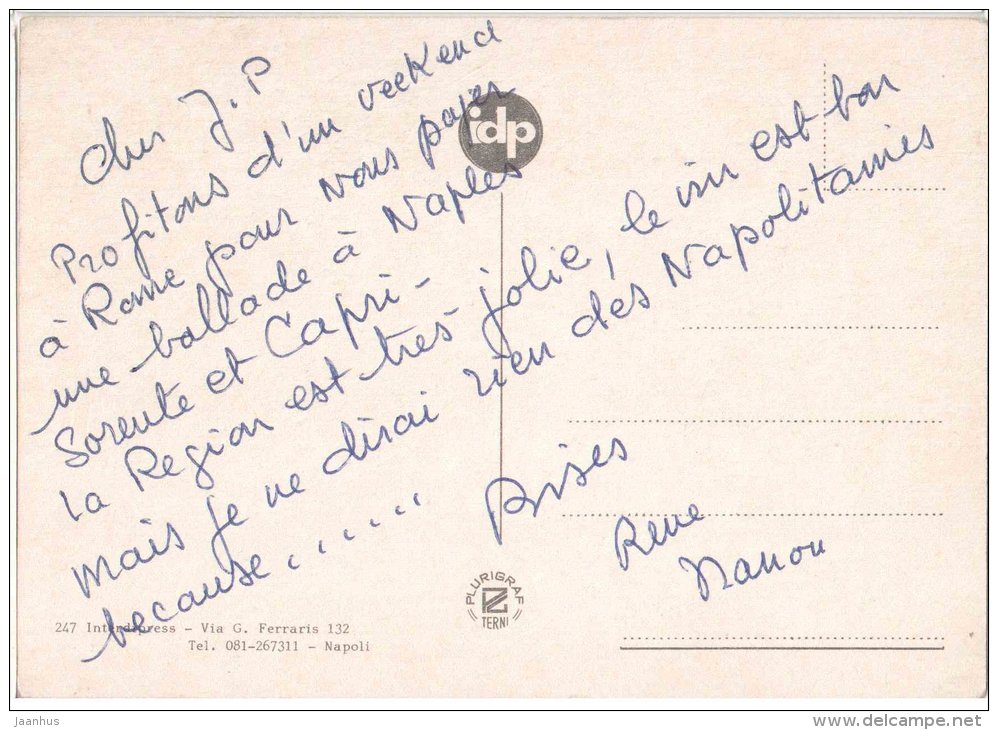 Cher J.P
Profitons d'un weekend
à Rome pour nous payer
une ballade à Naples
Sorente et Capri-
la Region est très jolie, le vin est bon
mais je ne dirai rien des Napolitains
because......
Bises
Rene
Manou
idp
PLURIGRAF
TERNI
247 Interdipress - Via G. Ferraris 132
Tel. 081-267311 - Napoli
jaanhus
www.delcampe.net